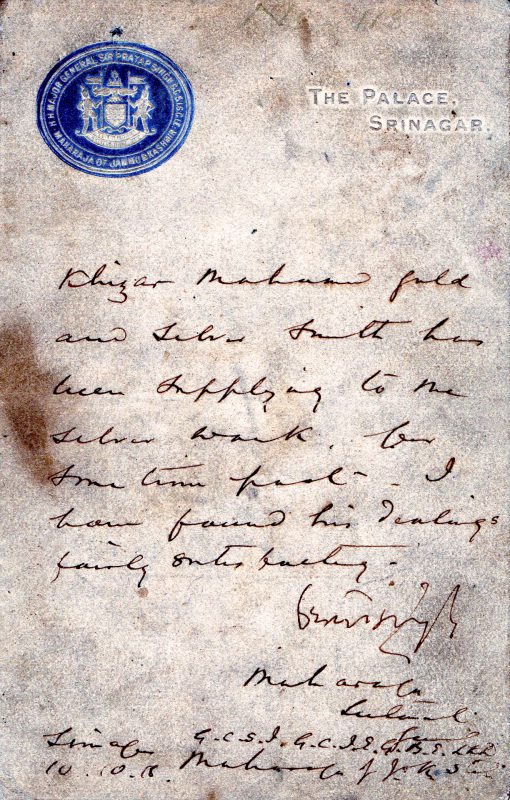 H.H. MAJOR GENERAL SIR PRATAP SINGH G.C.S.I. G.C.I.E.
MAHARAJA OF JAMMU & KASHMIR
THE PALACE,
SRINAGAR.
Khizar Mohamed gold
and Silver Smith has
been supplying to me
silver work, for
some time past - I
have found his dealings
fairly satisfactory -
Maharaja
Srinagar G.C.S.I. G.C.I.E. G.B.E. LLD
10.10.18. Maharaja of J & K State